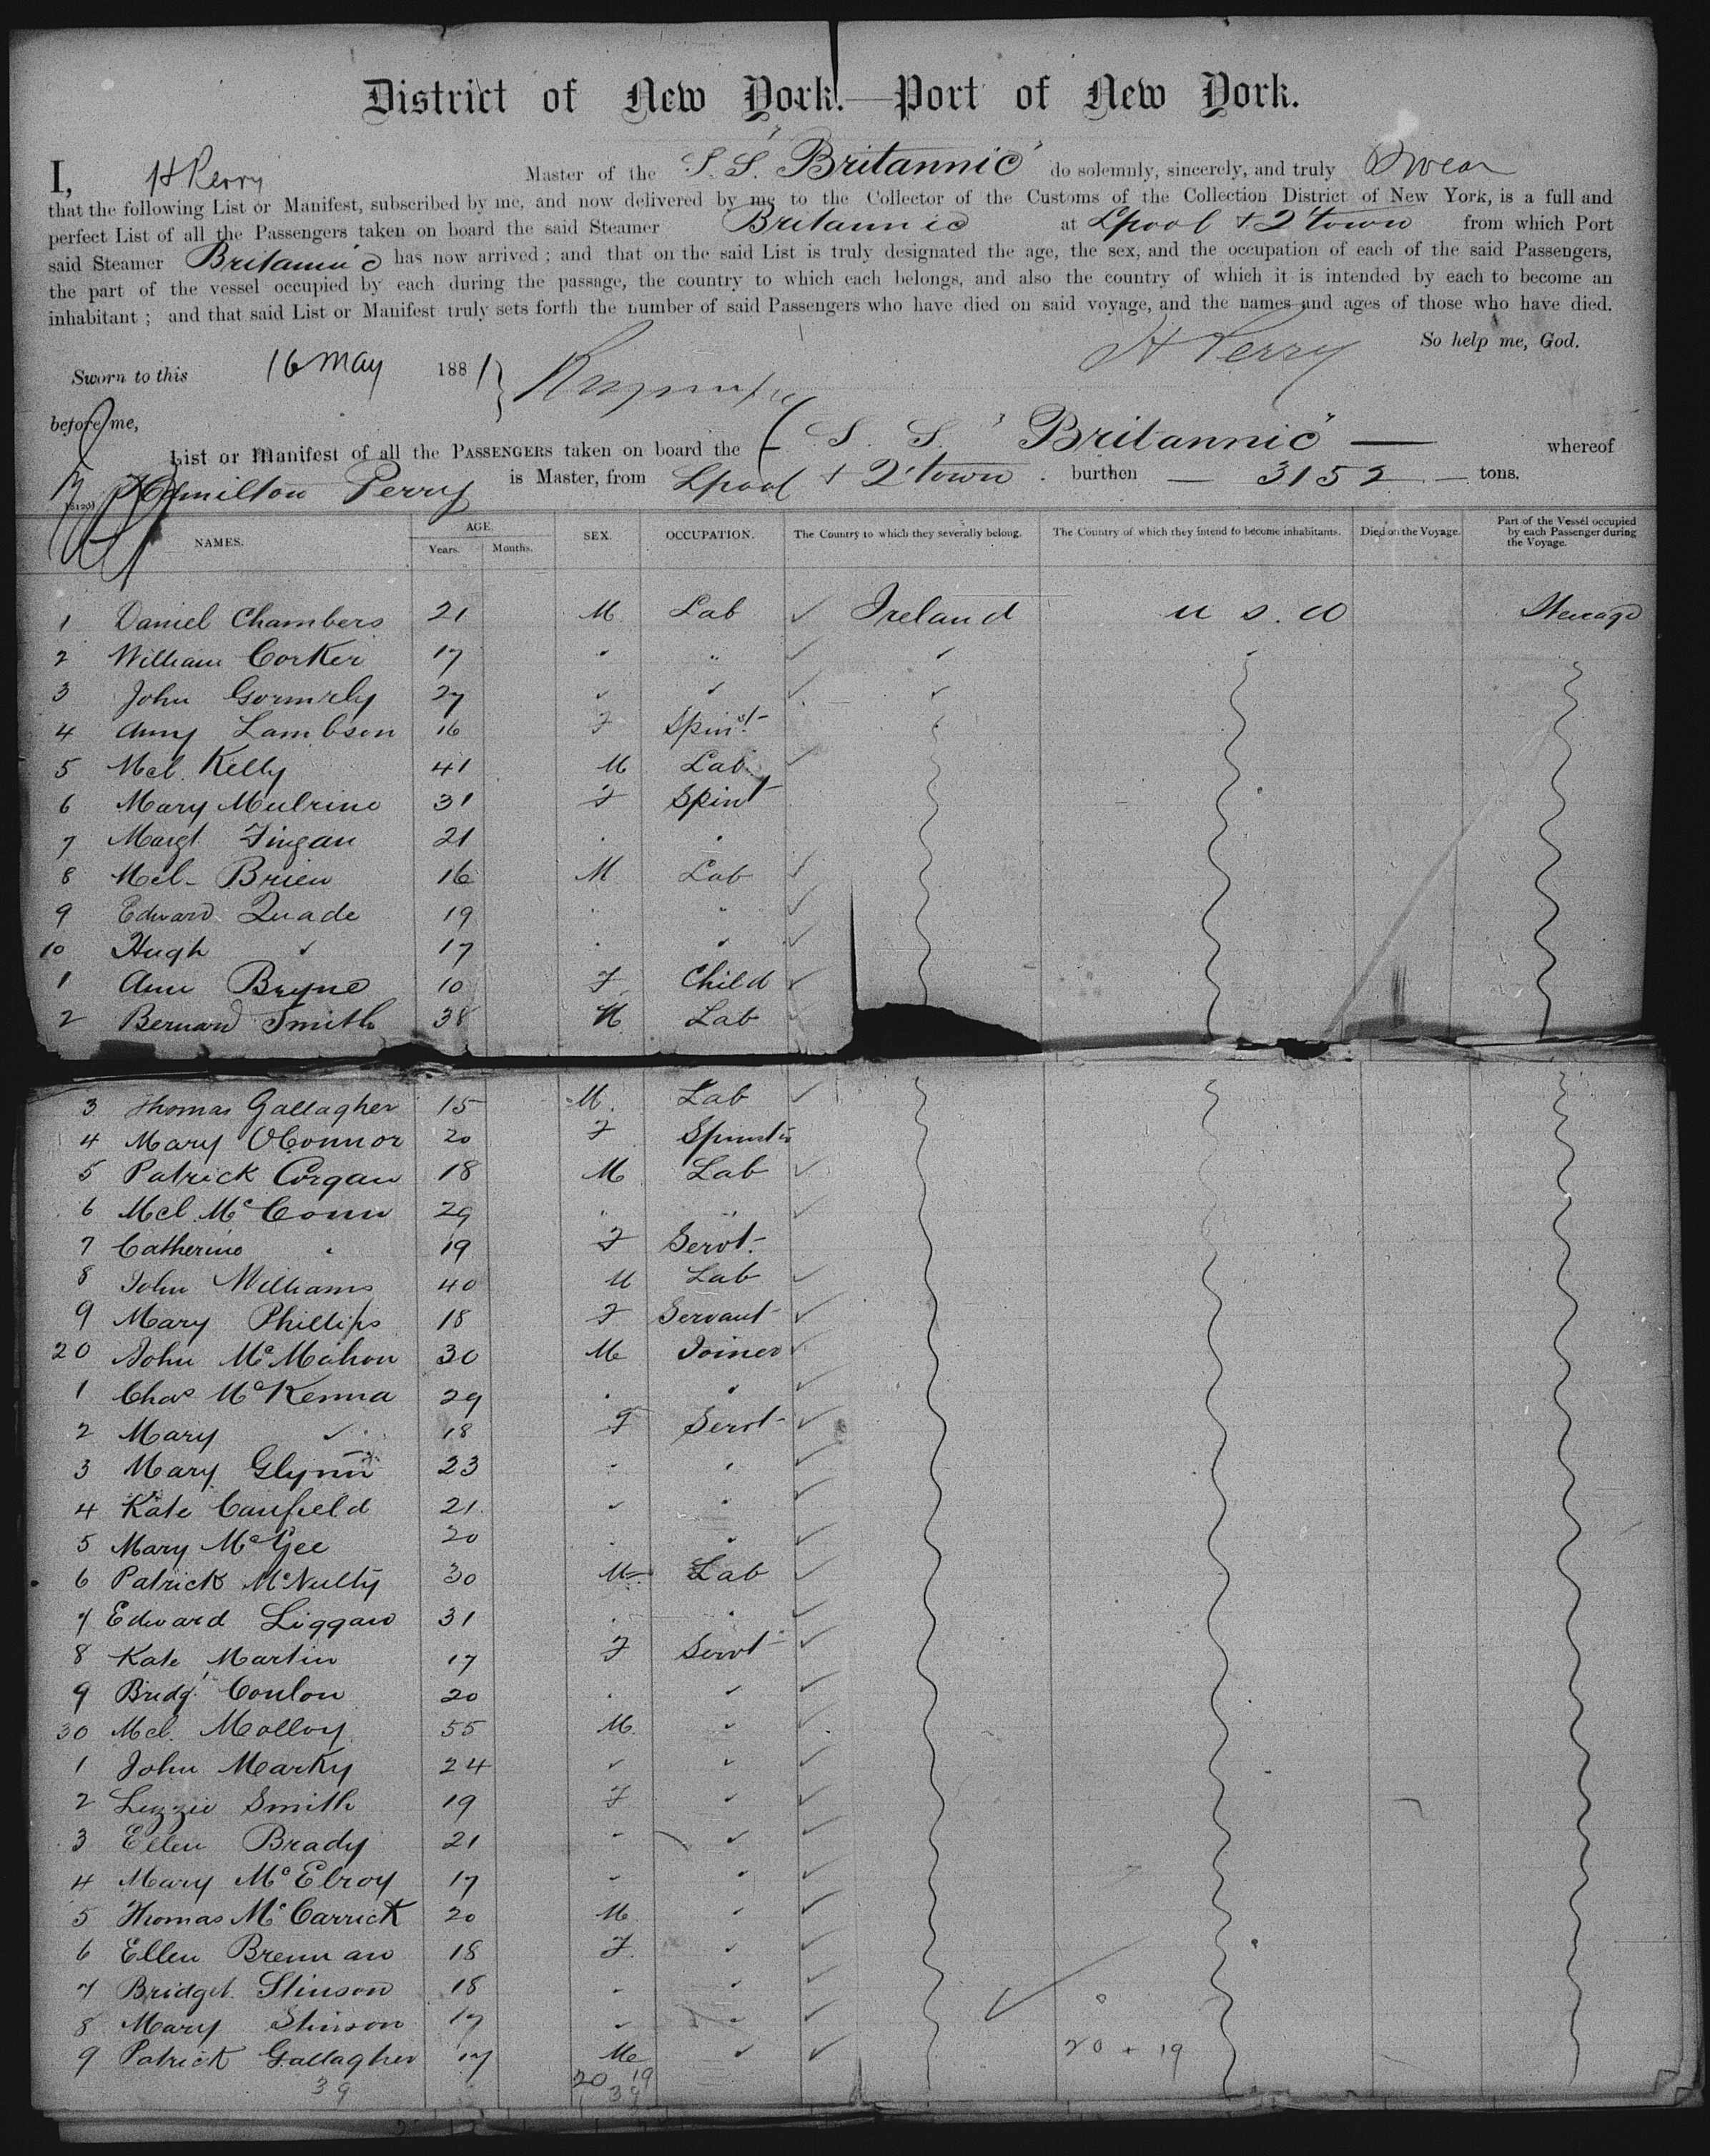 District of New York.—Port of New York.
I, H Perry Master of the S.S. "Britannic" do solemnly, sincerely, and truly Swear
that the following List or Manifest, subscribed by me, and now delivered by me to the Collector of the Customs of the Collection District of New York, is a full and
perfect List of all the Passengers taken on board the said Steamer Britannic at Lpool + Q'town from which Port
said Steamer Britannic has now arrived; and that on the said List is truly designated the age, the sex, and the occupation of each of the said Passengers,
the part of the vessel occupied by each during the passage, the country to which each belongs, and also the country of which it is intended by each to become an
inhabitant; and that said List or Manifest truly sets forth the number of said Passengers who have died on said voyage, and the names and ages of those who have died.
So help me, God.
H Perry
Sworn to this 16 May 1881
before me,
List or Manifest of all the PASSENGERS taken on board the S. S. "Britannic" — whereof
Hamilton Perry is Master, from Lpool + Q'town. burthen — 3152 — tons.
NAMES. AGE. Years. Months. SEX. OCCUPATION. The Country to which they severally belong. The Country of which they intend to become inhabitants. Died on the Voyage. Part of the Vessel occupied by each Passenger during the Voyage.
1 Daniel Chambers 21 M Lab ✓ Ireland U S. A Steerage
2 William Corker 17 " " ✓ "
3 John Gormely 27 " " ✓ "
4 Anny Lambson 16 F Spinst
5 Mcl. Kelly 41 M Lab ✓
6 Mary Mulrine 31 F Spint
7 Margt Fingan 21 " "
8 Mcl. Brien 16 M Lab ✓
9 Edward Quade 19 " " ✓
10 Hugh " 17 " " ✓
1 Ann Bryne 10 F Child ✓
2 Bernard Smith 38 M Lab ✓
3 Thomas Gallagher 15 M. Lab ✓
4 Mary OConnor 20 F
5 Patrick Corgan 18 M Lab ✓
6 Mcl McConn 29 " " ✓
7 Catherine " 19 F Servt.
8 John Williams 40 M Lab ✓
9 Mary Phillips 18 F Servant ✓
20 John McMahon 30 M Joiner ✓
1 Chas McKenna 29 " " ✓
2 Mary " 18 F Servt ✓
3 Mary Glynn 23 " " ✓
4 Kate Caufield 21 " " ✓
5 Mary McGee 20 " " ✓
6 Patrick McNulty 30 M Lab ✓
7 Edward Liggan 31 " " ✓
8 Kate Martin 17 F Servt ✓
9 Bridg. Conlon 20 " " ✓
30 Mcl. Molloy 55 M " ✓
1 John Marky 24 " " ✓
2 Lizzie Smith 19 F " ✓
3 Ellen Brady 21 " " ✓
4 Mary McElroy 17 " " ✓
5 Thomas McCarrick 20 M " ✓
6 Ellen Brennan 18 F. " ✓
7 Bridget Stinson 18 " " ✓
8 Mary Stinson 17 " " ✓
9 Patrick Gallagher 17 M " ✓ 20 + 19
39 20 19
39